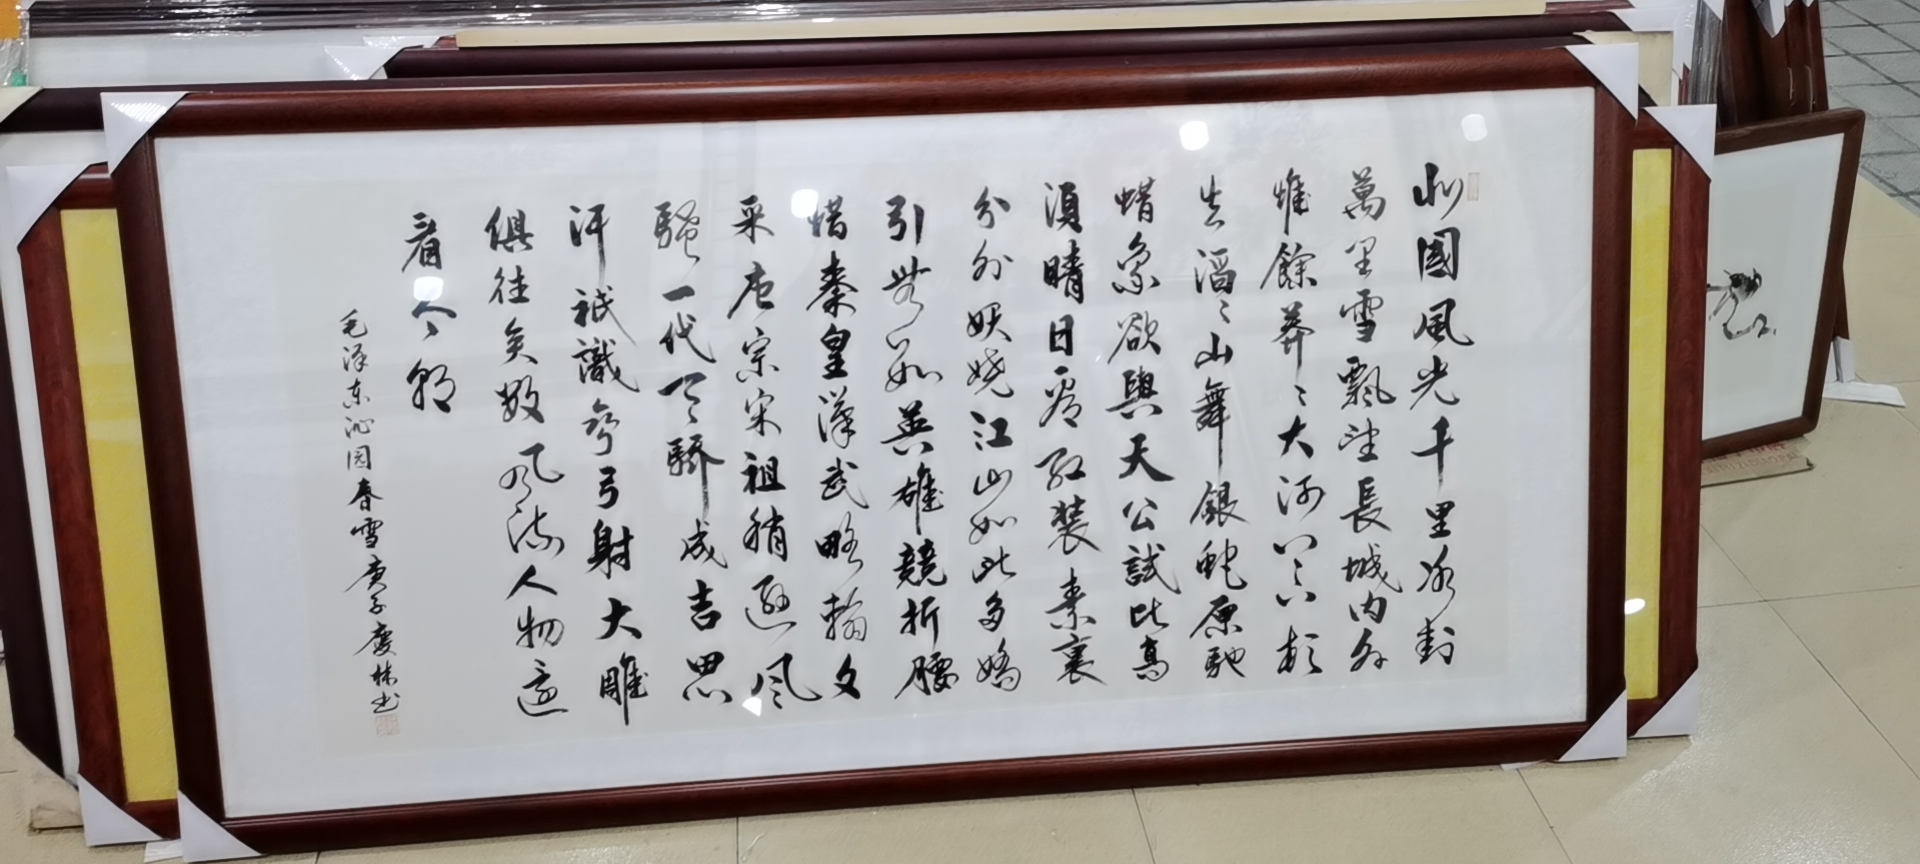 北國風光千里冰封
萬里雪飄望長城内外
惟餘莽〻大河上下頓
失滔〻山舞銀蛇原馳
蜡象欲與天公試比高
須晴日看紅装素裹
分外妖嬈江山如此多嬌
引無數英雄競折腰
惜秦皇漢武略輸文
采唐宗宋祖稍遜風
騷一代天驕成吉思
汗祇識彎弓射大雕
俱往矣數風流人物還
看今朝
毛泽东沁园春雪庚子慶林书